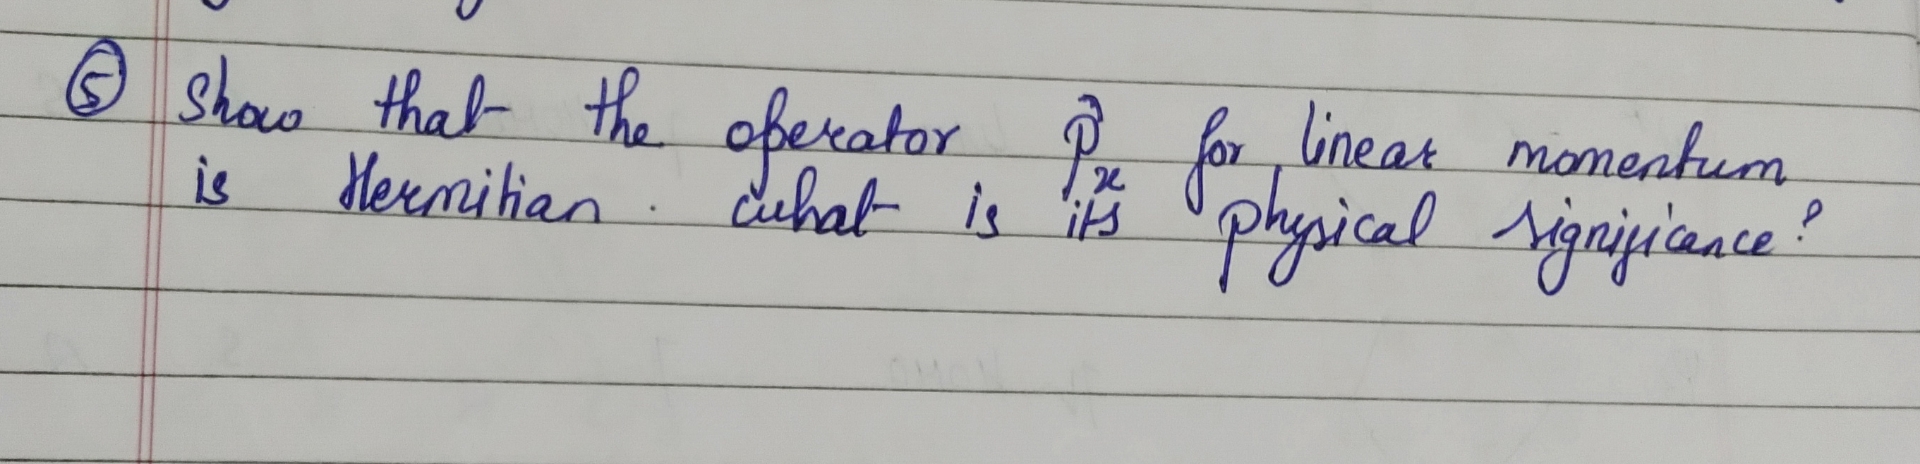 ⑤ Show that the operator p⃗x for linear momentum
is Hermitian. what is its physical significance?